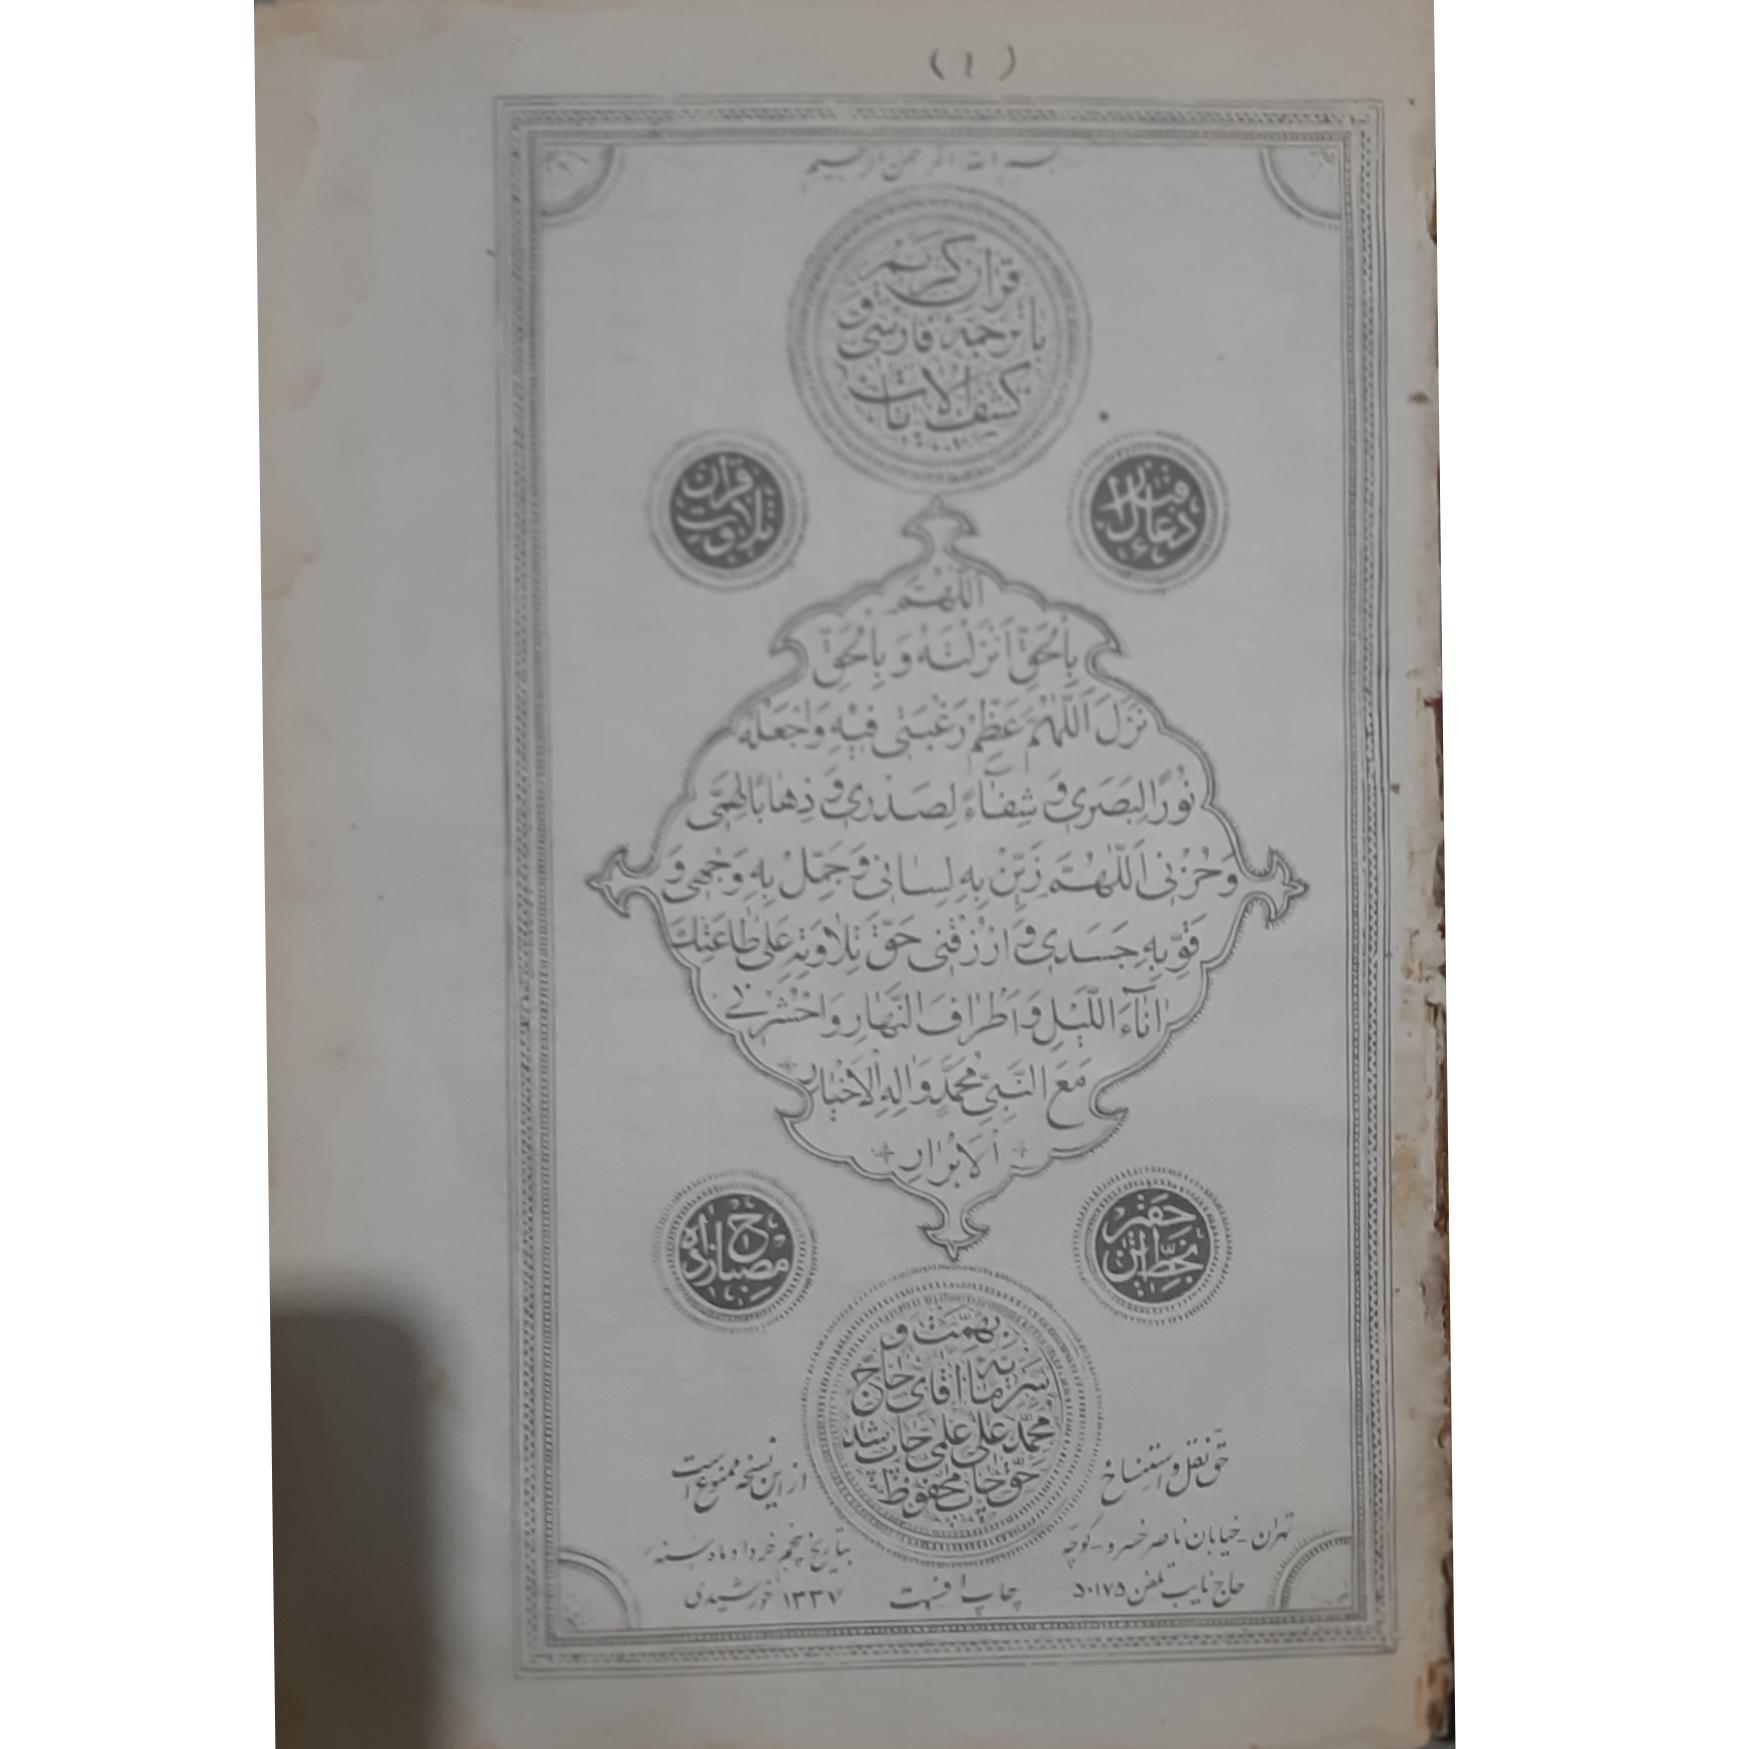 (١)
بسم الله الرحمن الرحیم
قرآن کریم
با ترجمه فارسی و
کشف الآیات
دعاء قبل از
تلاوت قرآن
اَللّهُمَّ
بِالْحَقِّ اَنْزَلْتَهُ وَ بِالْحَقِّ
نَزَلَ اَللّهُمَّ عَظِّمْ رَغْبَتی فیهِ وَاجْعَلْهُ
نُوراً لِبَصَری وَ شِفاءً لِصَدْری وَ ذِهاباً لِهَمّی
وَ حُزْنی اَللّهُمَّ زَیِّنْ بِهِ لِسانی وَ جَمِّلْ بِهِ وَجْهی وَ
قَوِّ بِهِ جَسَدی وَ ارْزُقْنی حَقَّ تِلاوَتِهِ عَلی طاعَتِكَ
اناءَ اللَّیْلِ وَ اَطْرافَ النَّهارِ وَاحْشُرْنی
مَعَ النَّبِیِّ مُحَمَّدٍ وَ الِهِ الْاَخْیارِ
الْاَبْرارِ
بخط این حقیر
ح مصباح زاده
بهمت و
سرمایه آقای حاج
محمد علی علمی چاپ شد
حق چاپ محفوظ
حق نقل و استنساخ
از این نسخه ممنوع است
تهران - خیابان ناصر خسرو - کوچه
حاج نایب تلفن ۵۰۱۷۵
چاپ افست
بتاریخ پنجم خرداد ماه سنه
۱۳۳۷ خورشیدی